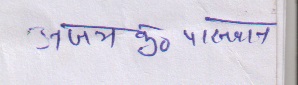 अजय कु० पासवान